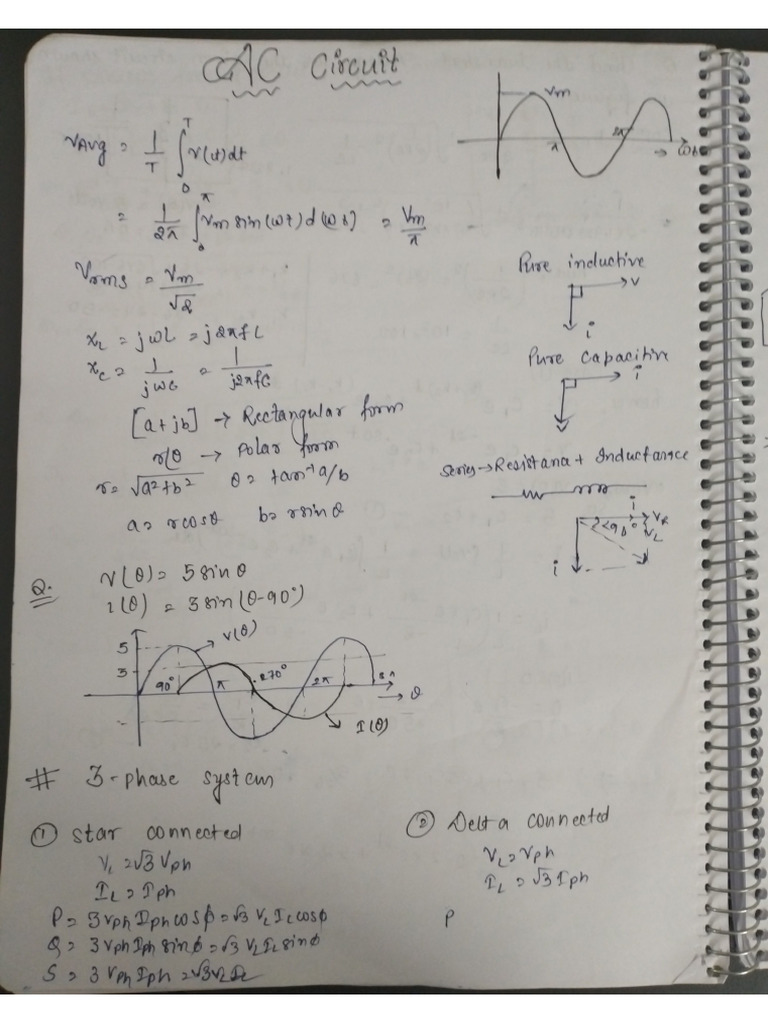 AC Circuit
Vm
π
2π
ωt
VAvg = 1/T ∫₀ᵀ v(t)dt
= 1/2π ∫₀^π Vm sin(ωt) d(ωt) = Vm/π
Vrms = Vm/√2
XL = jωL = j2πfL
Xc = 1/jωC = 1/j2πfC
[a+jb] → Rectangular form
r∠θ → Polar form
r = √a²+b² θ = tan⁻¹ a/b
a = r cosθ b = r sinθ
Pure inductive
V
i
Pure Capacitive
i
Series → Resistance + Inductance
i
VR
<90°
VL
i
Q. V(θ) = 5 sin θ
i(θ) = 3 sin(θ-90°)
5
3
V(θ)
90°
π
270°
2π
3π
θ
I(θ)
# 3-phase system
① Star connected
VL = √3 Vph
IL = Iph
P = 3 Vph Iph cosϕ = √3 VL IL cosϕ
Q = 3 Vph Iph sinϕ = √3 VL IL sinϕ
S = 3 Vph Iph = √3 VL IL
② Delta connected
VL = Vph
IL = √3 Iph
P